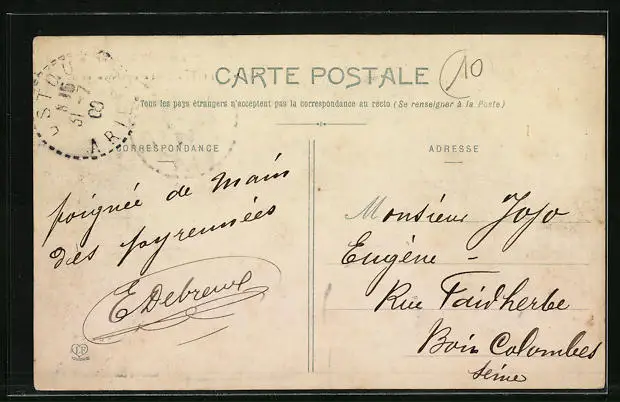 CARTE POSTALE
10
Tous les pays étrangers n'acceptent pas la correspondance au recto (Se renseigner à la Poste)
CORRESPONDANCE
ADRESSE
poignée de main
des pyrennées
E Debreux
Monsieur Jojo
Eugène -
Rue Faidherbe
Bois Colombes
Seine